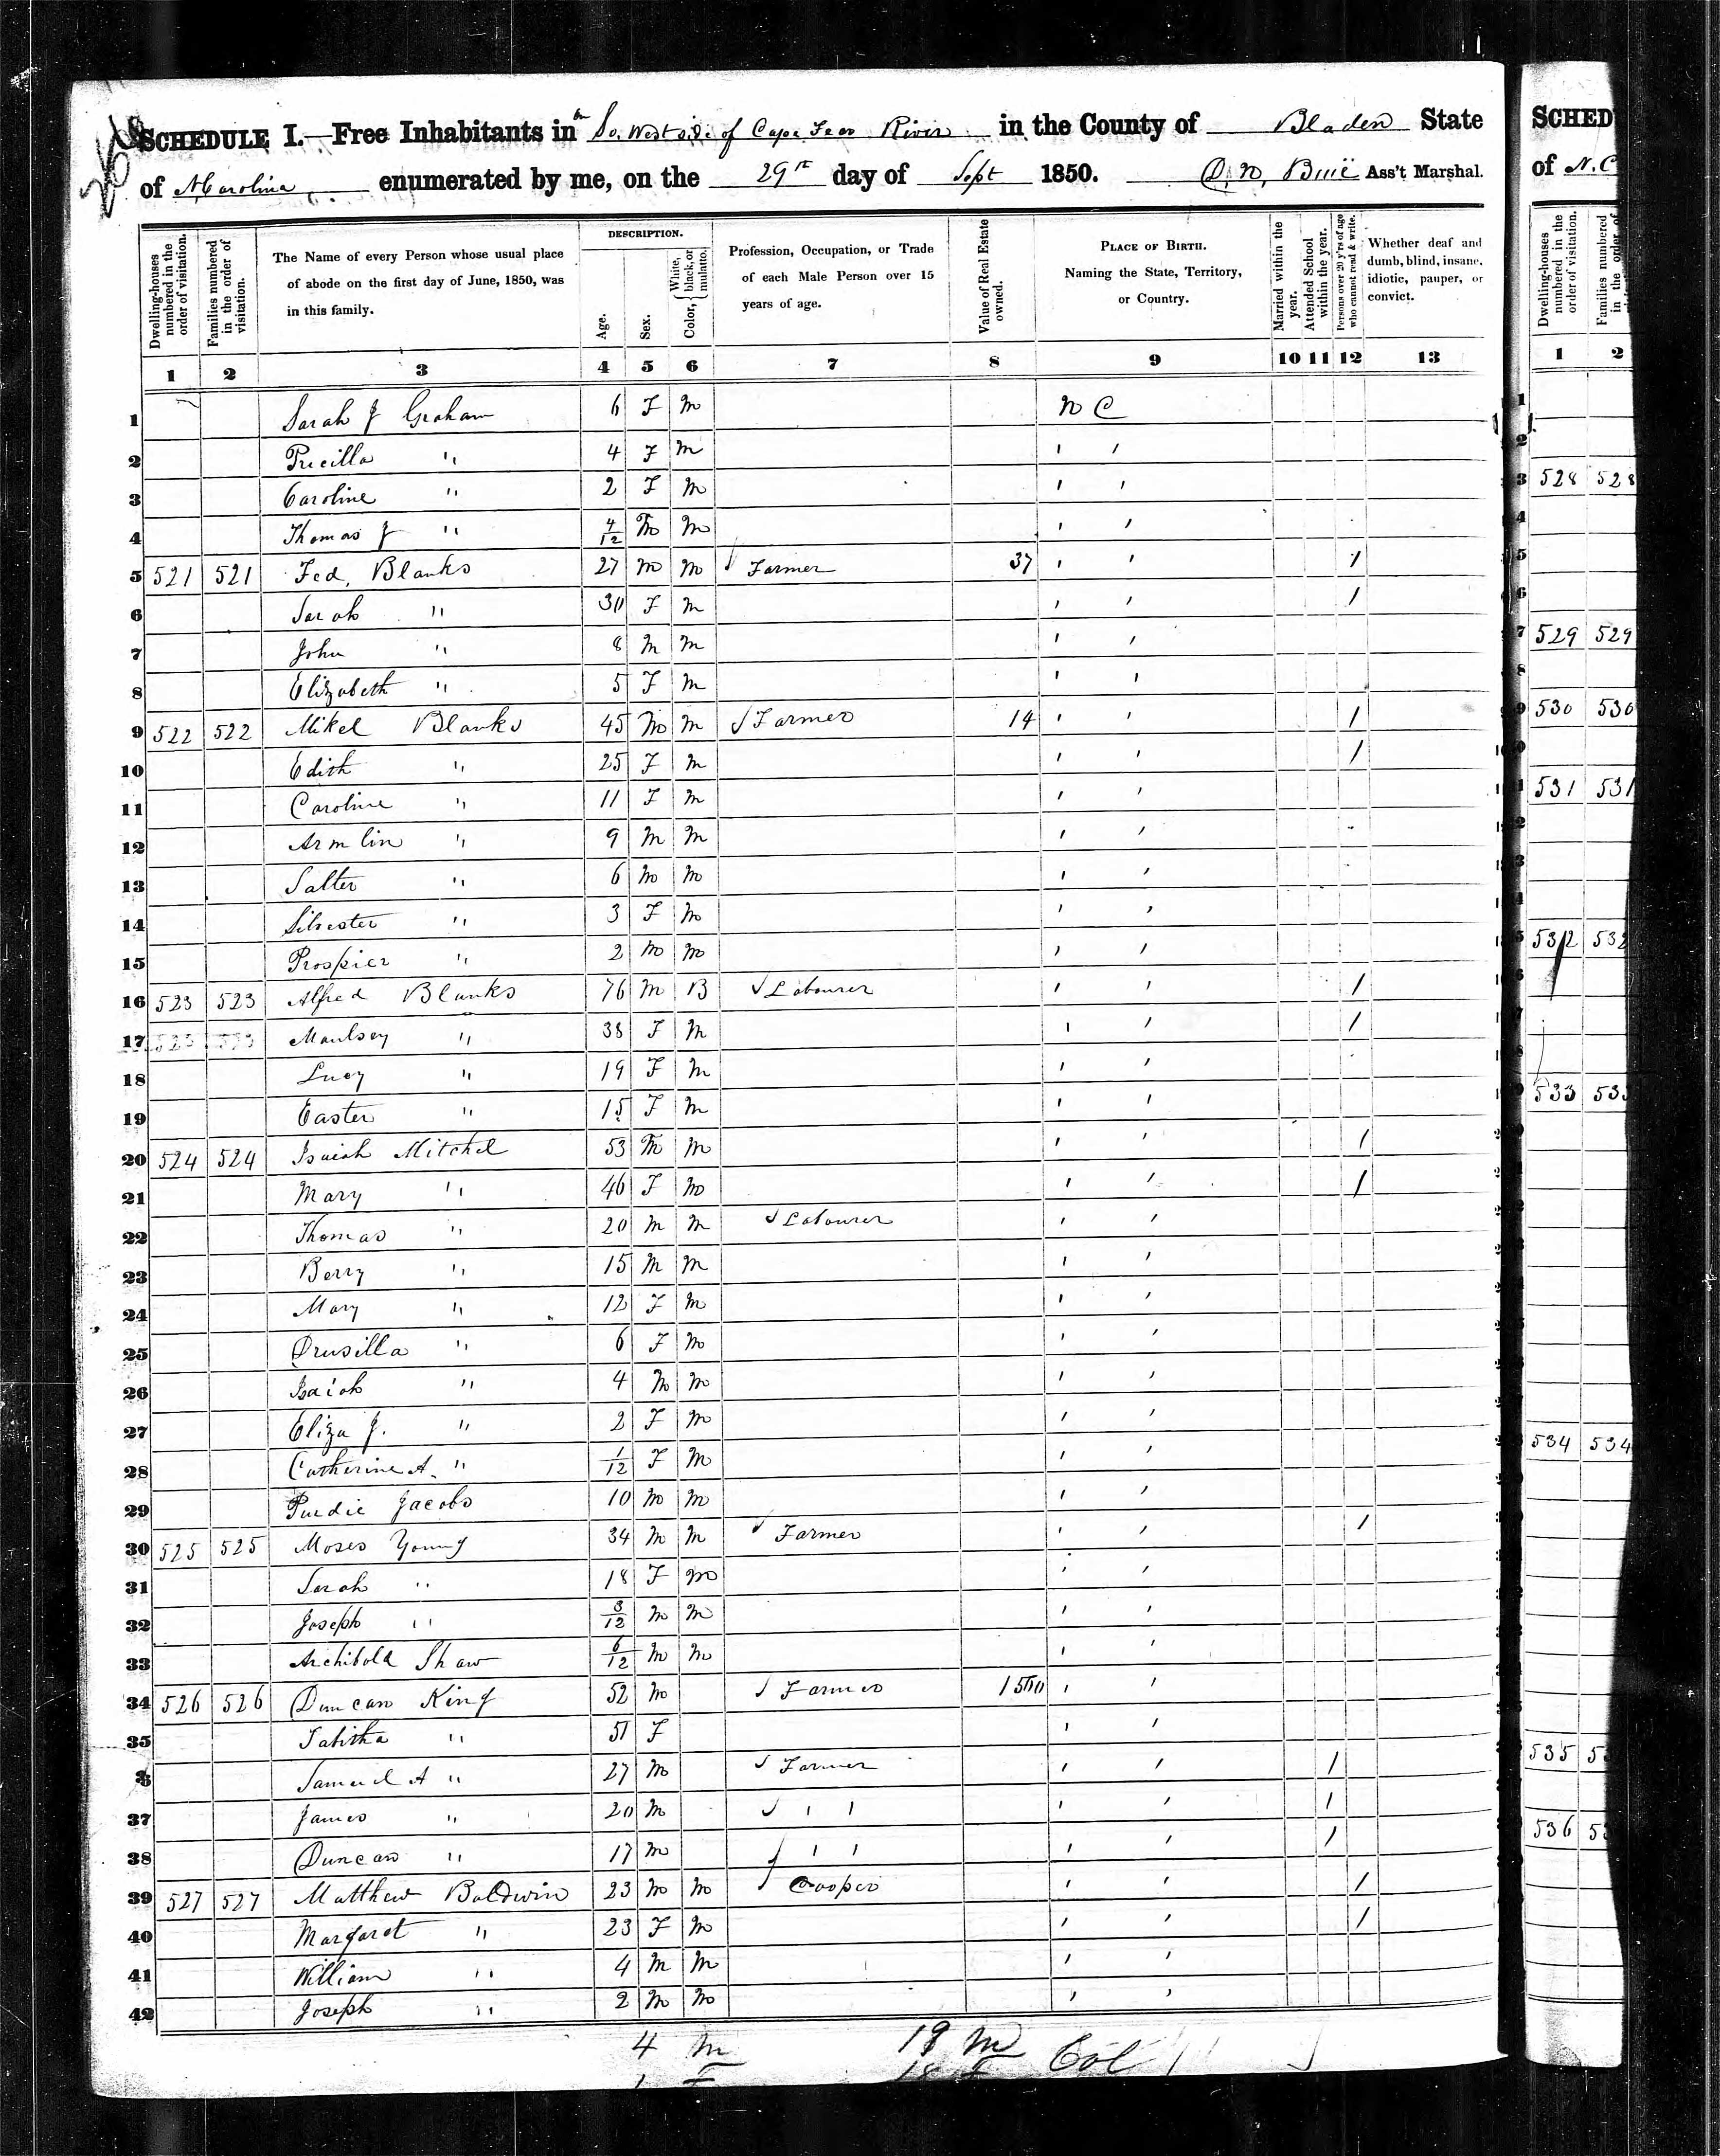 SCHEDULE I.—Free Inhabitants in So. West side of Cape Fear River in the County of Bladen State
of N. Carolina, enumerated by me, on the 29th day of Sept 1850. Ass't Marshal.
Dwelling-houses numbered in the order of visitation.
Families numbered in the order of visitation.
The Name of every Person whose usual place of abode on the first day of June, 1850, was in this family.
DESCRIPTION.
Age.
Sex.
Color, { White, black, or mulatto.
Profession, Occupation, or Trade of each Male Person over 15 years of age.
Value of Real Estate owned.
PLACE OF BIRTH. Naming the State, Territory, or Country.
Married within the year.
Attended School within the year.
Persons over 20 y'rs of age who cannot read & write.
Whether deaf and dumb, blind, insane, idiotic, pauper, or convict.
1 2 3 4 5 6 7 8 9 10 11 12 13
1 Sarah J Graham 6 F M N C
2 Precilla " 4 F M " "
3 Caroline " 2 F M " "
4 Thomas J " 4/12 M M " "
5 521 521 Fed, Blanks 27 M M Farmer 37 " " /
6 Sarah " 30 F M " " /
7 John " 8 M M " "
8 Elizabeth " 5 F M " "
9 522 522 Mikel Blanks 45 M M Farmer 14 " " /
10 Edith " 25 F M " " /
11 Caroline " 11 F M " "
12 Armlin " 9 M M " "
13 Salter " 6 M M " "
14 Silvester " 3 F M " "
15 Prospier " 2 M M " "
16 523 523 Alfred Blanks 76 M B Labourer " " /
17 Maulsey " 38 F M " " /
18 Lucy " 19 F M " "
19 Easter " 15 F M " "
20 524 524 Isaiah Mitchel 53 M M " " /
21 Mary " 46 F M " " /
22 Thomas " 20 M M Labourer " "
23 Berry " 15 M M " "
24 Mary " 12 F M " "
25 Drusilla " 6 F M " "
26 Isaiah " 4 M M " "
27 Eliza J. " 2 F M " "
28 Catherine A. " 1/12 F M " "
29 Purdie Jacobs 10 M M " "
30 525 525 Moses Young 34 M M Farmer " " /
31 Sarah " 18 F M " "
32 Joseph " 3/12 M M " "
33 Archibold Shaw 6/12 M M " "
34 526 526 Duncan King 52 M Farmer 1500 " "
35 Tabitha " 51 F " "
Samuel A " 27 M Farmer " " /
37 James " 20 M " " " " /
38 Duncan " 17 M " " " " /
39 527 527 Matthew Baldwin 23 M M Cooper " " /
40 Margaret " 23 F M " " /
41 William " 4 M M " "
42 Joseph " 2 M M " "
4 M 19 M Col
18 F
SCHED
of N.C
Dwelling-houses numbered in the order of visitation.
Families numbered in the order of
1 2
528 528
529 529
530 530
531 531
532 532
533 533
534 534
535
536